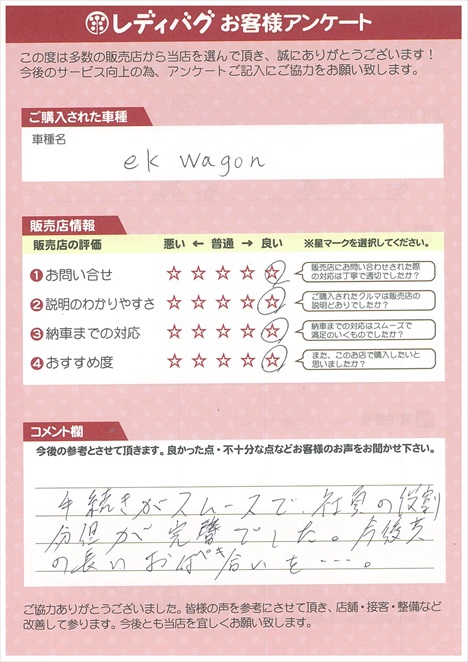 レディバグ お客様アンケート
この度は多数の販売店から当店を選んで頂き、誠にありがとうございます！
今後のサービス向上の為、アンケートご記入にご協力をお願い致します。
ご購入された車種
車種名
ek wagon
販売店情報
販売店の評価 悪い ← 普通 → 良い ※星マークを選択してください。
❶お問い合せ ☆ ☆ ☆ ☆ ☆ 販売店にお問い合わせされた際の対応は丁寧で適切でしたか？
❷説明のわかりやすさ ☆ ☆ ☆ ☆ ☆ ご購入されたクルマは販売店の説明どおりでしたか？
❸納車までの対応 ☆ ☆ ☆ ☆ ☆ 納車までの対応はスムーズで満足のいくものでしたか？
❹おすすめ度 ☆ ☆ ☆ ☆ ☆ また、このお店で購入したいと思いましたか？
コメント欄
今後の参考とさせて頂きます。良かった点・不十分な点などお客様のお声をお聞かせ下さい。
手続きがスムースで、社員の役割
分担が完璧でした。今後共
の長いお付き合いを…。
ご協力ありがとうございました。皆様の声を参考にさせて頂き、店舗・接客・整備など
改善して参ります。今後とも当店を宜しくお願い致します。